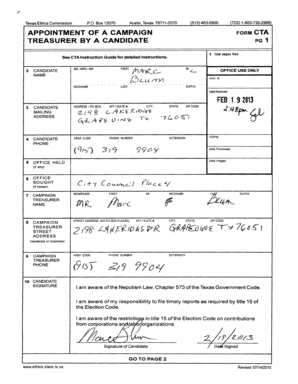 Texas Ethics Commission P.O. Box 12070 Austin, Texas 78711-2070 (512) 463-5800 (TDD 1-800-735-2989)
APPOINTMENT OF A CAMPAIGN TREASURER BY A CANDIDATE
FORM CTA
PG 1
See CTA Instruction Guide for detailed instructions.
1 Total pages filed:
2 CANDIDATE NAME
MS / MRS / MR FIRST MI
MARC
NICKNAME LAST SUFFIX
Blum
OFFICE USE ONLY
Acct. #
Date Received
FEB 19 2013
2:48pm
3 CANDIDATE MAILING ADDRESS
ADDRESS / PO BOX; APT / SUITE #; CITY; STATE; ZIP CODE
2198 LAKERIDGE
GRAPEVINE TX 76051
4 CANDIDATE PHONE
AREA CODE PHONE NUMBER EXTENSION
(915) 319 9904
Date Processed
5 OFFICE HELD (if any)
Date Imaged
6 OFFICE SOUGHT (if known)
City Council Place 4
7 CAMPAIGN TREASURER NAME
MS/MRS/MR FIRST MI NICKNAME LAST SUFFIX
MR. Marc Blum
8 CAMPAIGN TREASURER STREET ADDRESS (residence or business)
STREET ADDRESS (NO PO BOX PLEASE); APT / SUITE #; CITY; STATE; ZIP CODE
2198 GRAPEVINE TX 76051
9 CAMPAIGN TREASURER PHONE
AREA CODE PHONE NUMBER EXTENSION
(915) 319 9904
10 CANDIDATE SIGNATURE
I am aware of the Nepotism Law, Chapter 573 of the Texas Government Code.
I am aware of my responsibility to file timely reports as required by title 15 of the Election Code.
I am aware of the restrictions in title 15 of the Election Code on contributions from corporations and labor organizations.
2/19/2013
Signature of Candidate Date Signed
GO TO PAGE 2
www.ethics.state.tx.us Revised 07/14/2010